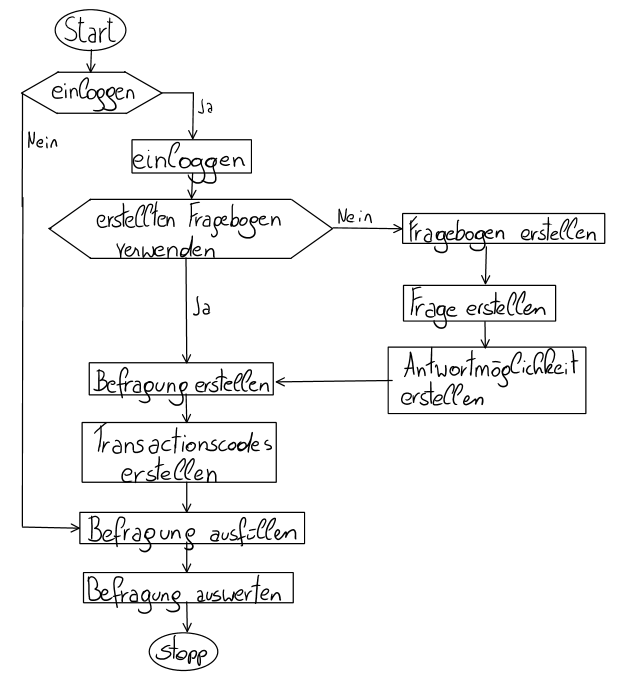 Start
einloggen
Ja
Nein
einloggen
erstellten Fragebogen
verwenden
Nein
Fragebogen erstellen
Frage erstellen
Ja
Antwortmöglichkeit
erstellen
Befragung erstellen
Transactionscodes
erstellen
Befragung ausfüllen
Befragung auswerten
Stopp